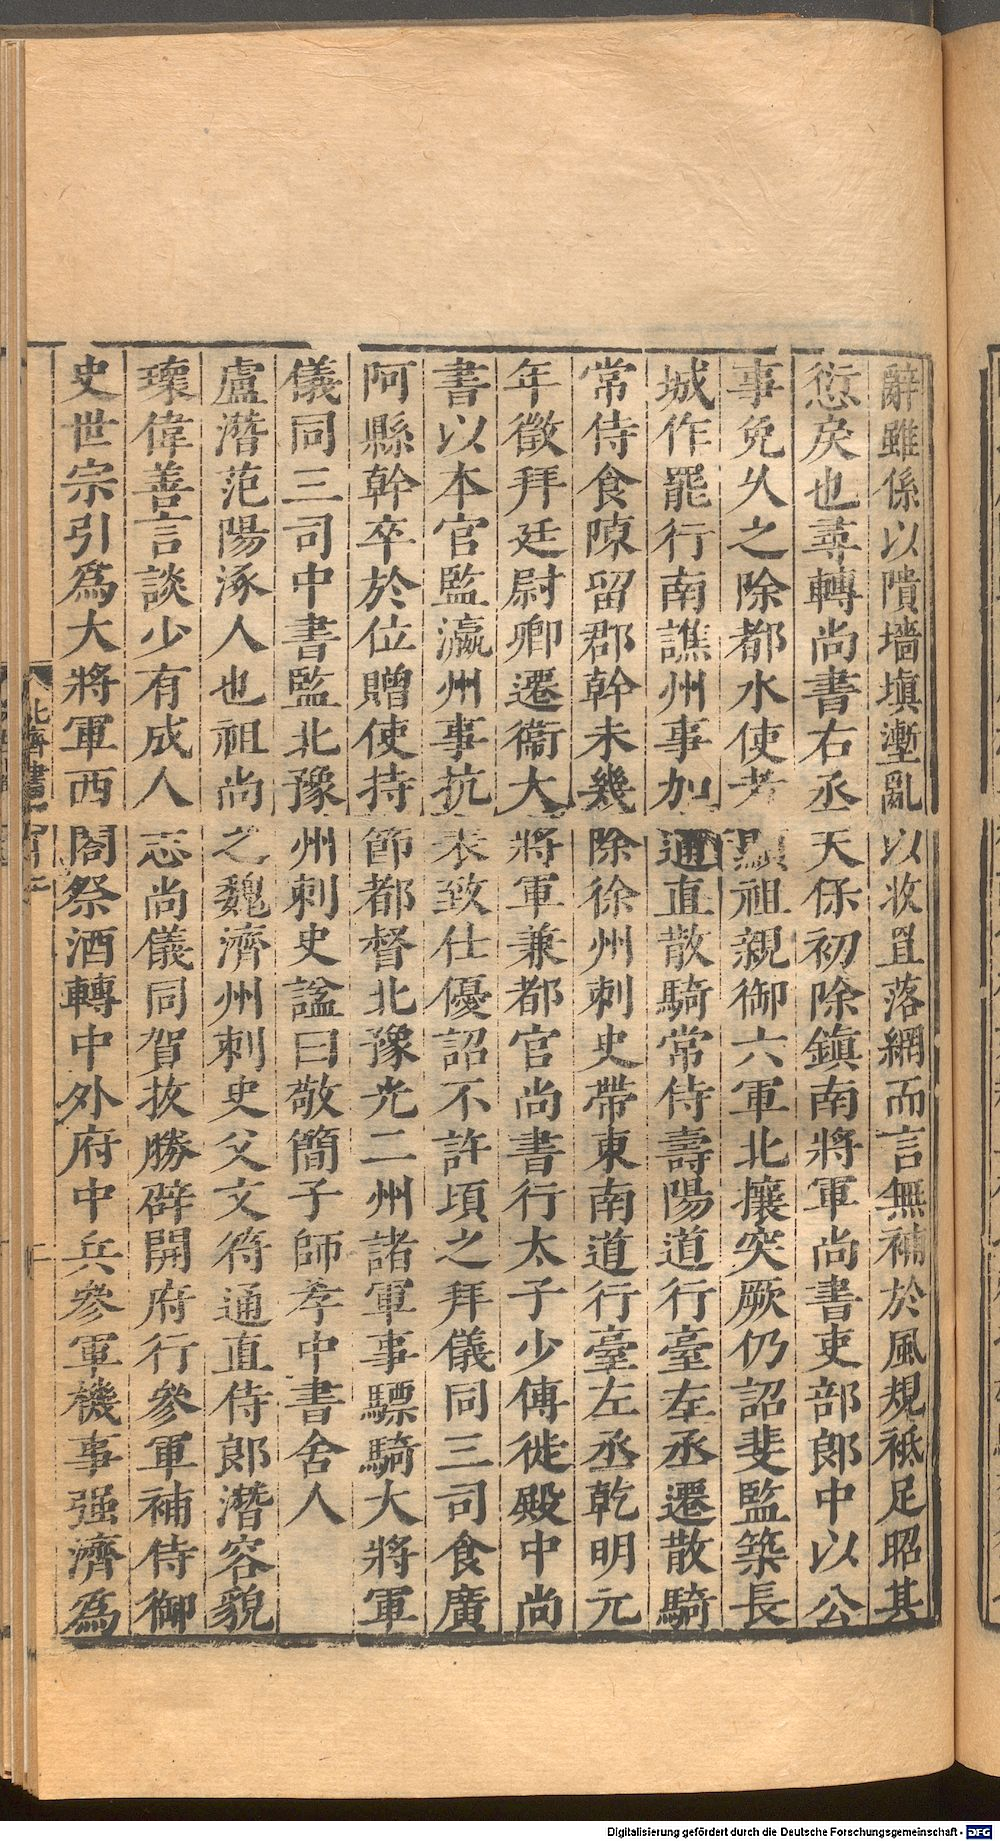 辭雖係以隤墻塡壍亂以收且落網而言無補於風規袛足昭其
愆戾也尋轉尚書右丞天保初除鎮南將軍尚書吏部郎中以公
事免久之除都水使者顯祖親御六軍北攘突厥仍詔斐監築長
城作罷行南譙州事加通直散騎常侍壽陽道行臺左丞遷散騎
常侍食陳留郡幹未幾除徐州刺史帶東南道行臺左丞乾明元
年徵拜廷尉卿遷衞大將軍兼都官尚書行太子少傅徙殿中尚
書以本官監瀛州事抗表致仕優詔不許頃之拜儀同三司食廣
阿縣幹卒於位贈使持節都督北豫光二州諸軍事驃騎大將軍
儀同三司中書監北豫州刺史謚曰敬簡子師孝中書舍人
盧潛范陽涿人也祖尚之魏濟州刺史父文符通直侍郎潛容貌
瓌偉善言談少有成人志尚儀同賀拔勝辟開府行參軍補侍御
史世宗引爲大將軍西閤祭酒轉中外府中兵參軍機事强濟爲
北齊書
Digitalisierung gefördert durch die Deutsche Forschungsgemeinschaft - DFG